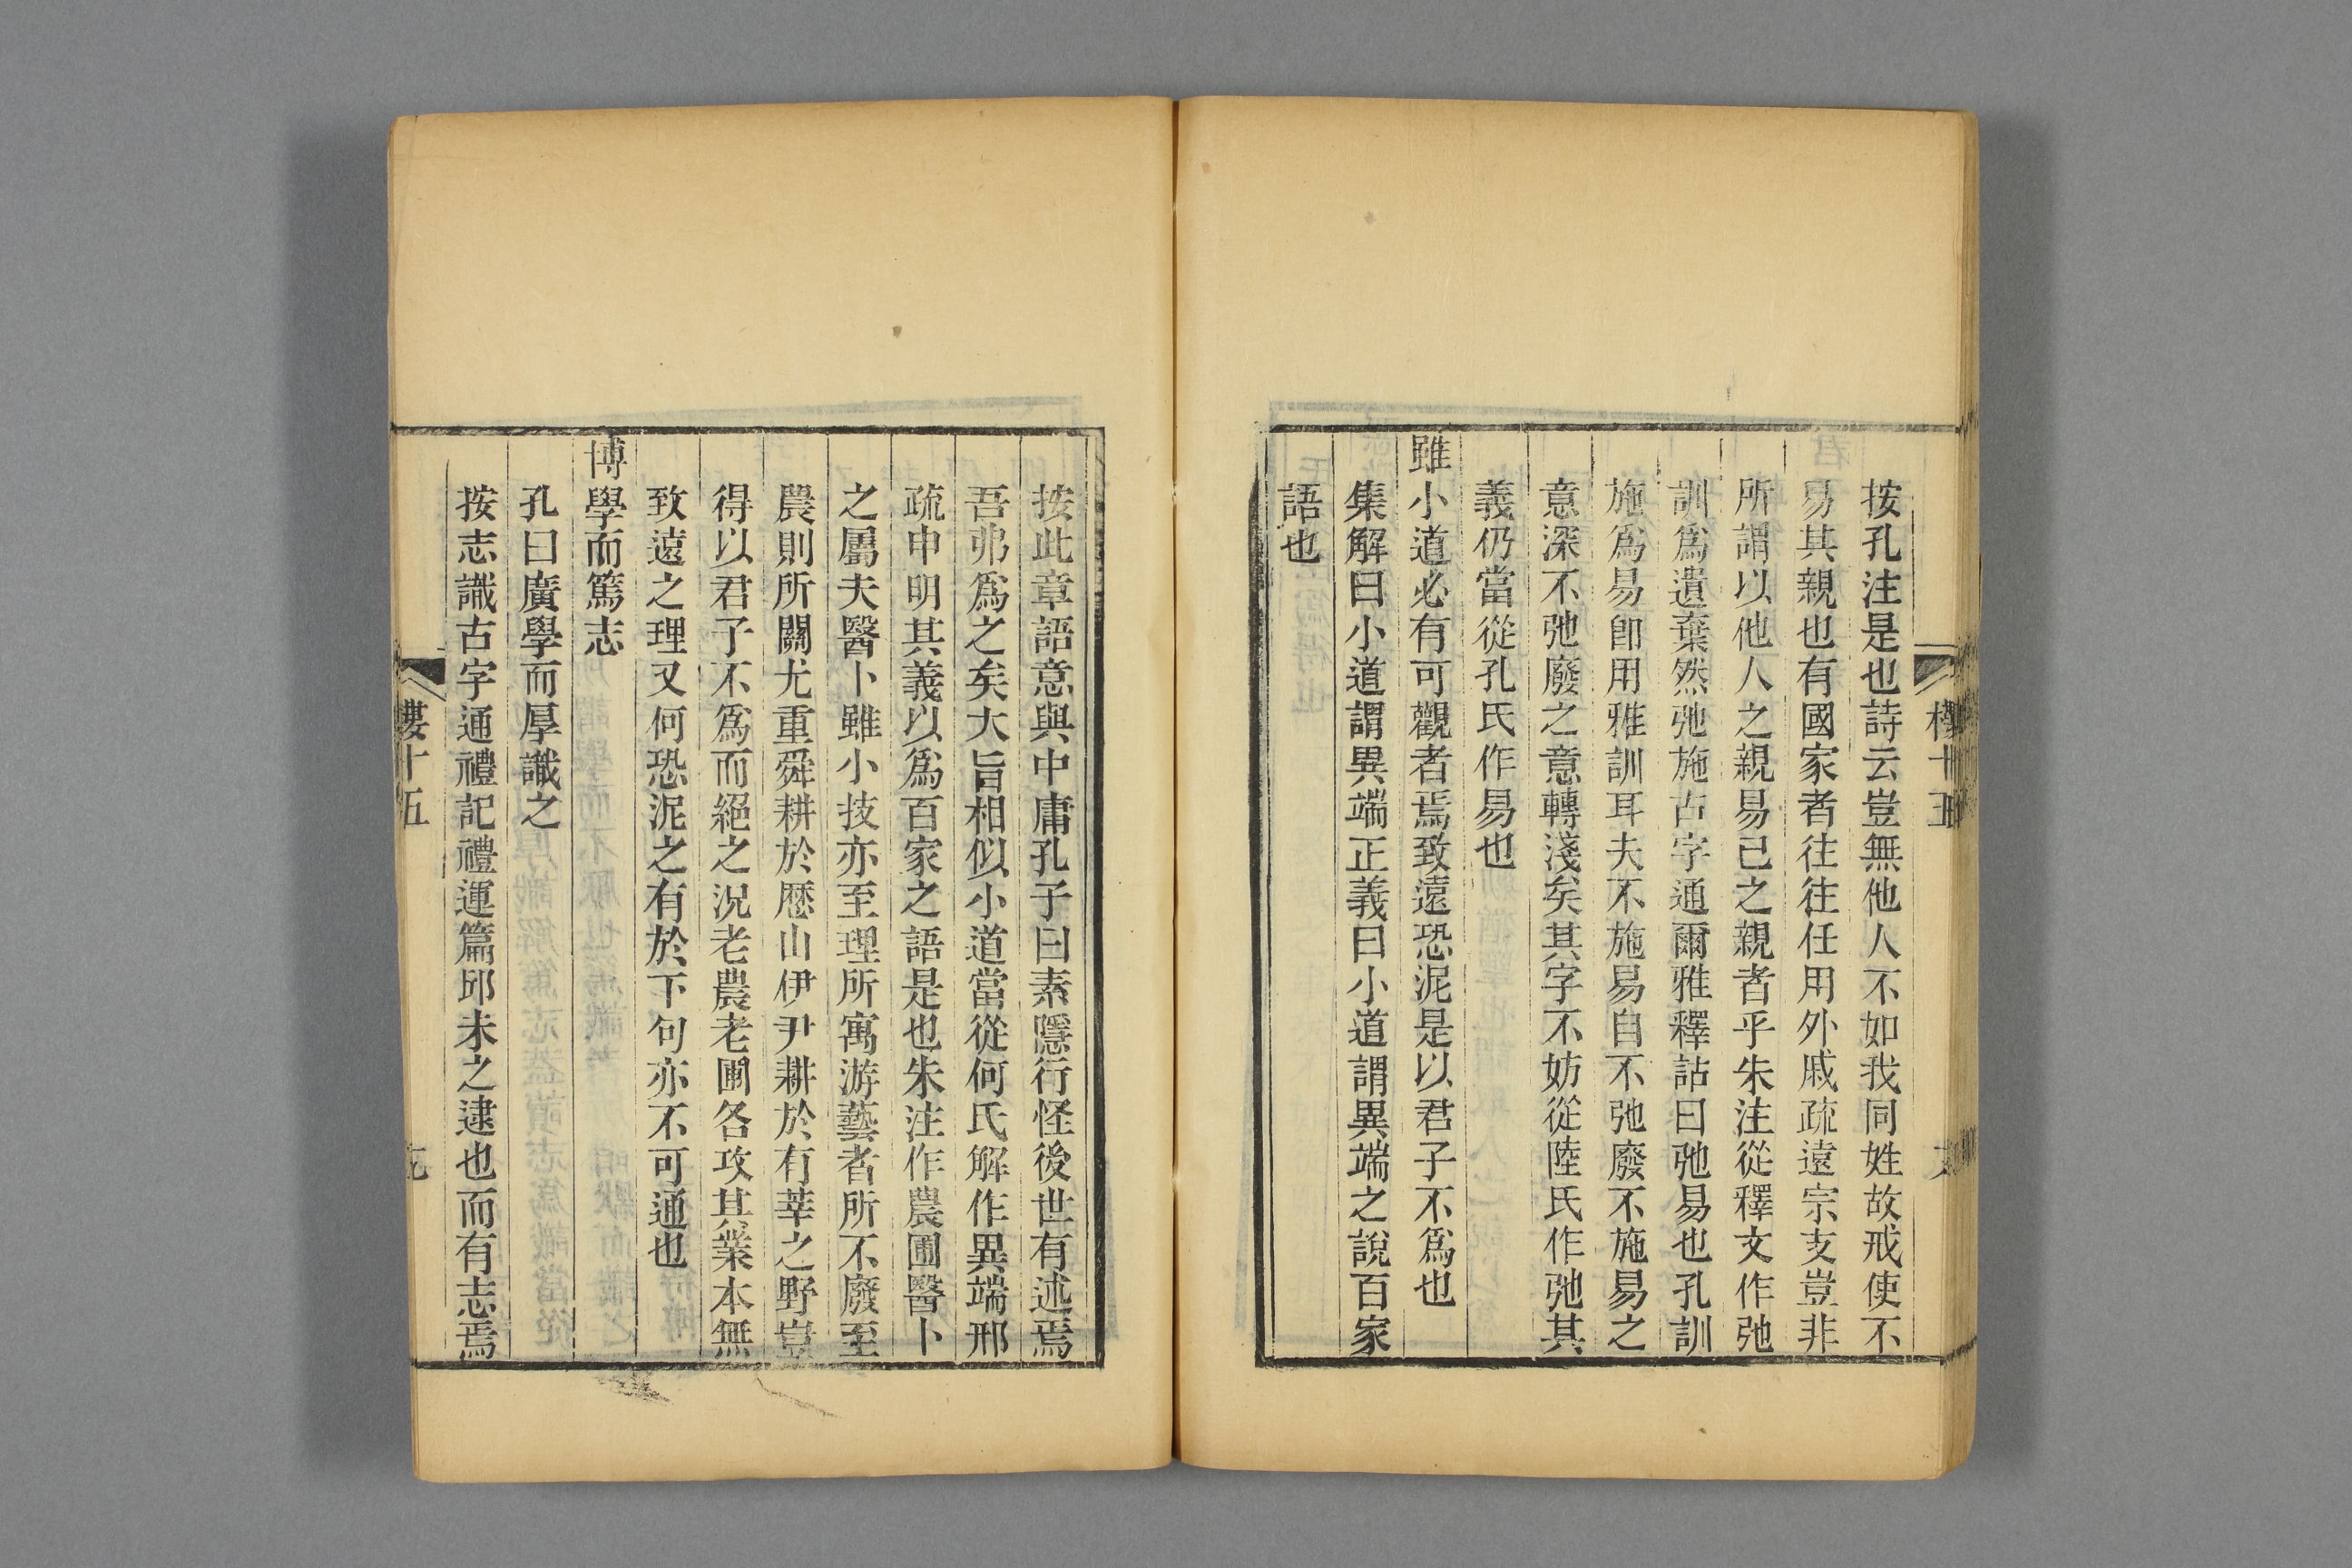 按孔注是也詩云豈無他人不如我同姓故戒使不
易其親也有國家者往往任用外戚疏遠宗支豈非
所謂以他人之親易已之親者乎朱注從釋文作弛
訓爲遺棄然弛施古字通爾雅釋詁曰弛易也孔訓
施爲易卽用雅訓耳夫不施易自不弛廢不施易之
意深不弛廢之意轉淺矣其字不妨從陸氏作弛其
義仍當從孔氏作易也
雖小道必有可觀者焉致遠恐泥是以君子不爲也
集解曰小道謂異端正義曰小道謂異端之說百家
語也
按此章語意與中庸孔子曰素隱行怪後世有述焉
吾弗爲之矣大旨相似小道當從何氏解作異端邢
疏申明其義以爲百家之語是也朱注作農圃醫卜
之屬夫醫卜雖小技亦至理所寓游藝者所不廢至
農則所關尤重舜耕於歷山伊尹耕於有莘之野豈
得以君子不爲而絕之況老農老圃各攻其業本無
致遠之理又何恐泥之有於下句亦不可通也
博學而篤志
孔曰廣學而厚識之
按志識古字通禮記禮運篇邱未之逮也而有志焉
樓十五